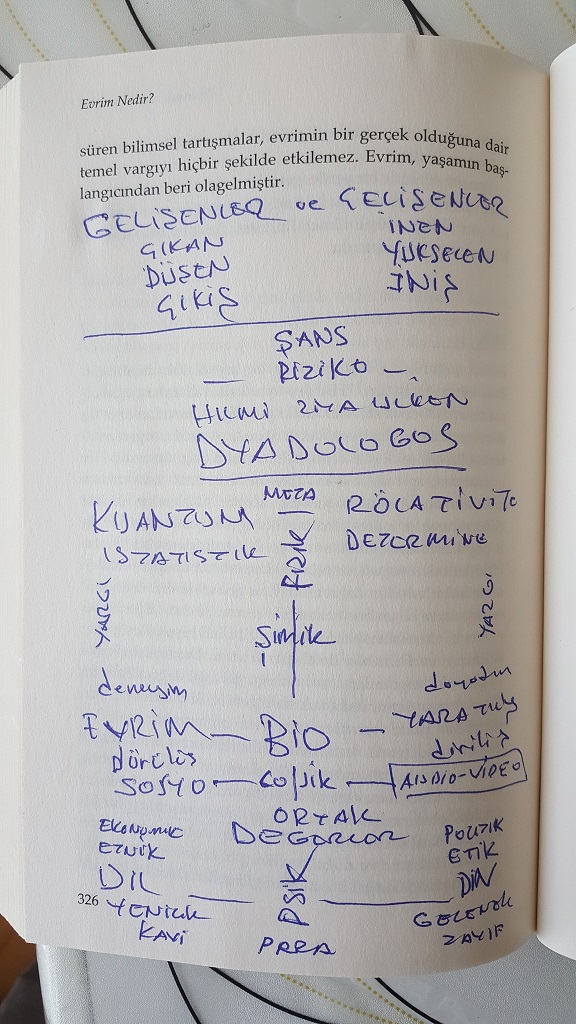 Evrim Nedir?
süren bilimsel tartışmalar, evrimin bir gerçek olduğuna dair
temel vargıyı hiçbir şekilde etkilemez. Evrim, yaşamın baş-
langıcından beri olagelmiştir.
GELİŞENLER ve GELİŞENLER
ÇIKAN İNEN
DÜŞEN YÜKSELEN
ÇIKIŞ İNİŞ
ŞANS
— RİZİKO —
HİLMİ ZİYA ÜLKEN
DYADOLOGOS
META
KUANTUM RÖLATİVİTE
FİZİK
İSTATİSTİK DETERMİNE
YARGI YARGI
Şimik
deneyim
EVRİM — BİO — YARATILIŞ
diriliş
SOSYO — — AUDİO-VİDEO
ORTAK
DEĞERLER
EKONOMİK POLİTİK
ETNİK ETİK
DİL DİN
PSİK
326
YENİLİK GELENEK
KAVİ PARA ZAYIF